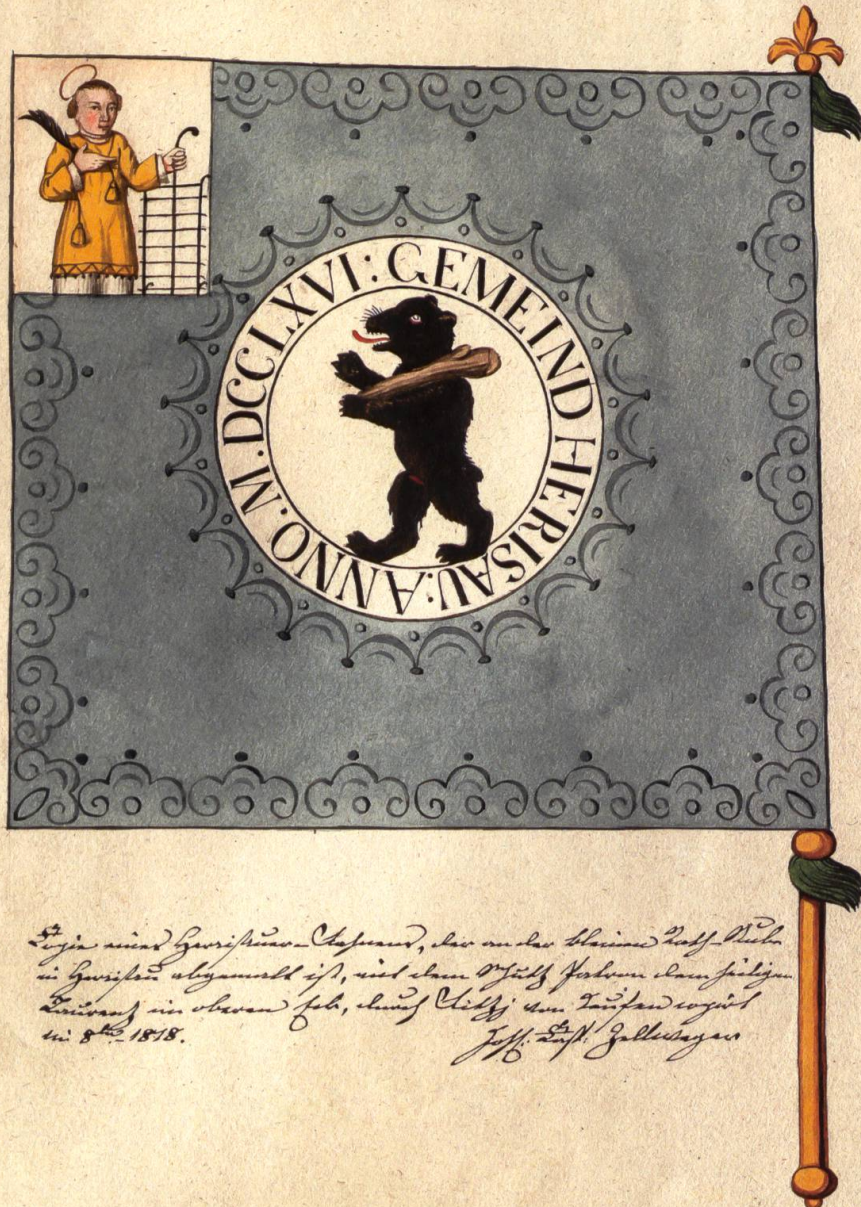 GEMEIND HERISAU: ANNO. M. DCCLXVI:
Copie eines Herisauer-Fahnens, der an der kleinen Rath-Stube
in Herisau abgemalt ist, mit dem Schutz Patron dem heiligen
Laurenz im oberen Eck, durch Fitzi von Teufen copirt
im 8br 1818. Joh: Casp: Zellweger